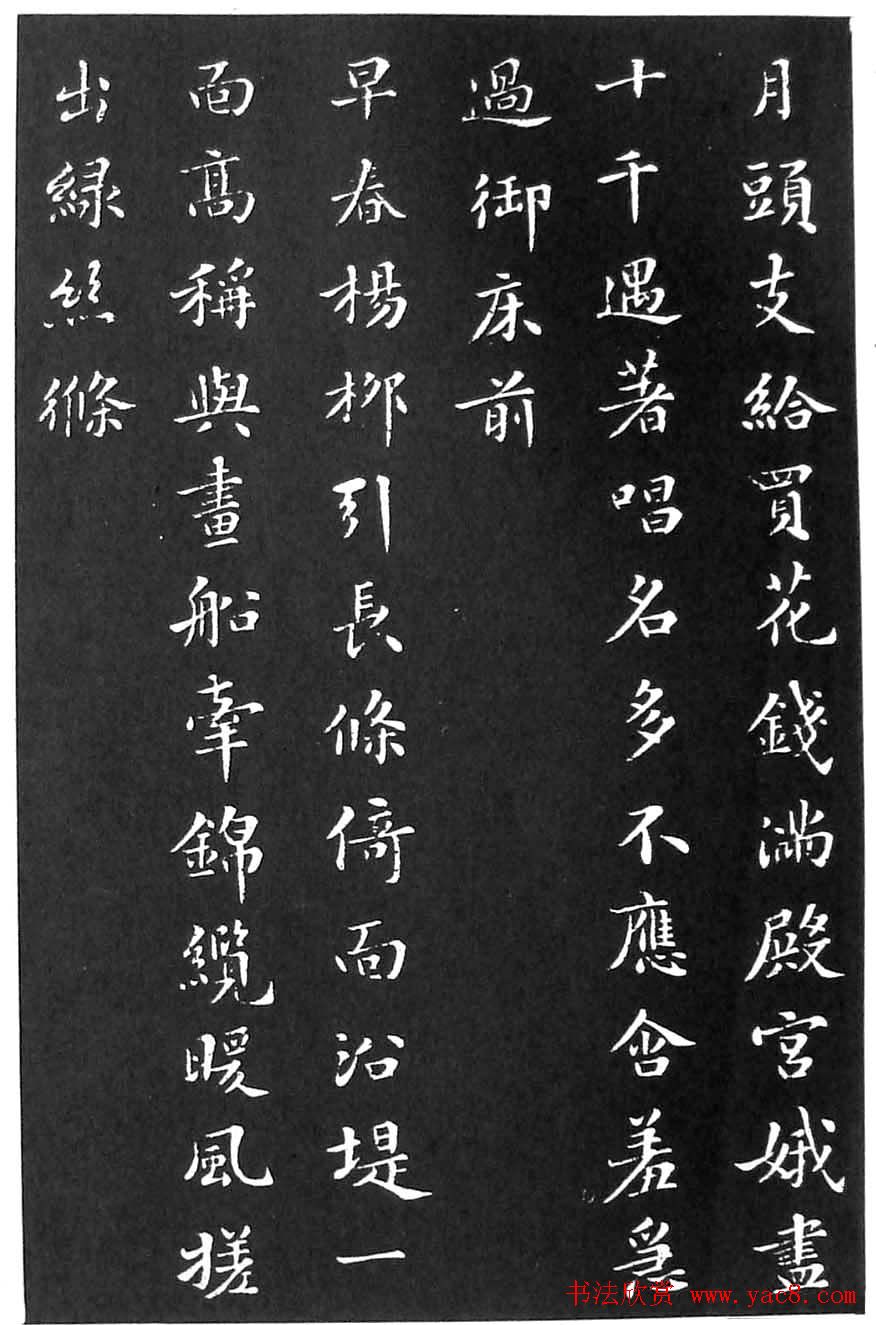 月頭支給買花錢滿殿宮娥盡
十千遇著唱名多不應含羞急
過御床前
早春楊柳引長條倚面沿堤一
面高稱與畫船牽錦纜暖風搓
出緑絲絛
书法欣赏 www.yac8.com